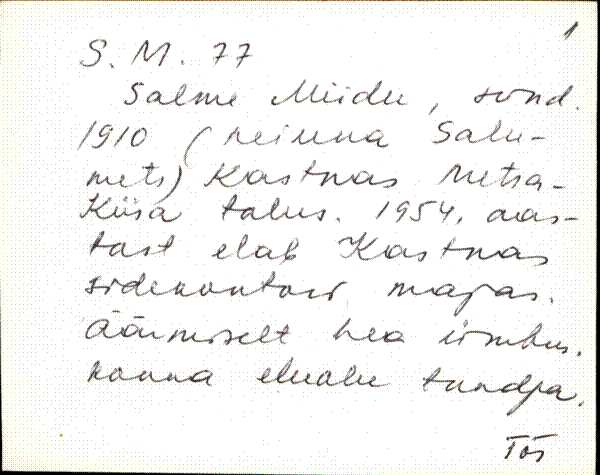 1
S. M. 77
Salme Miidu, sünd.
1910 (neiuna Salu-
mets) Kastnas Metsa-
Kiisa talus. 1954. aas-
tast elab Kastnas
sidekontori majas.
Äärmiselt hea ümbus-
konna eluolu tundja.
Tõs